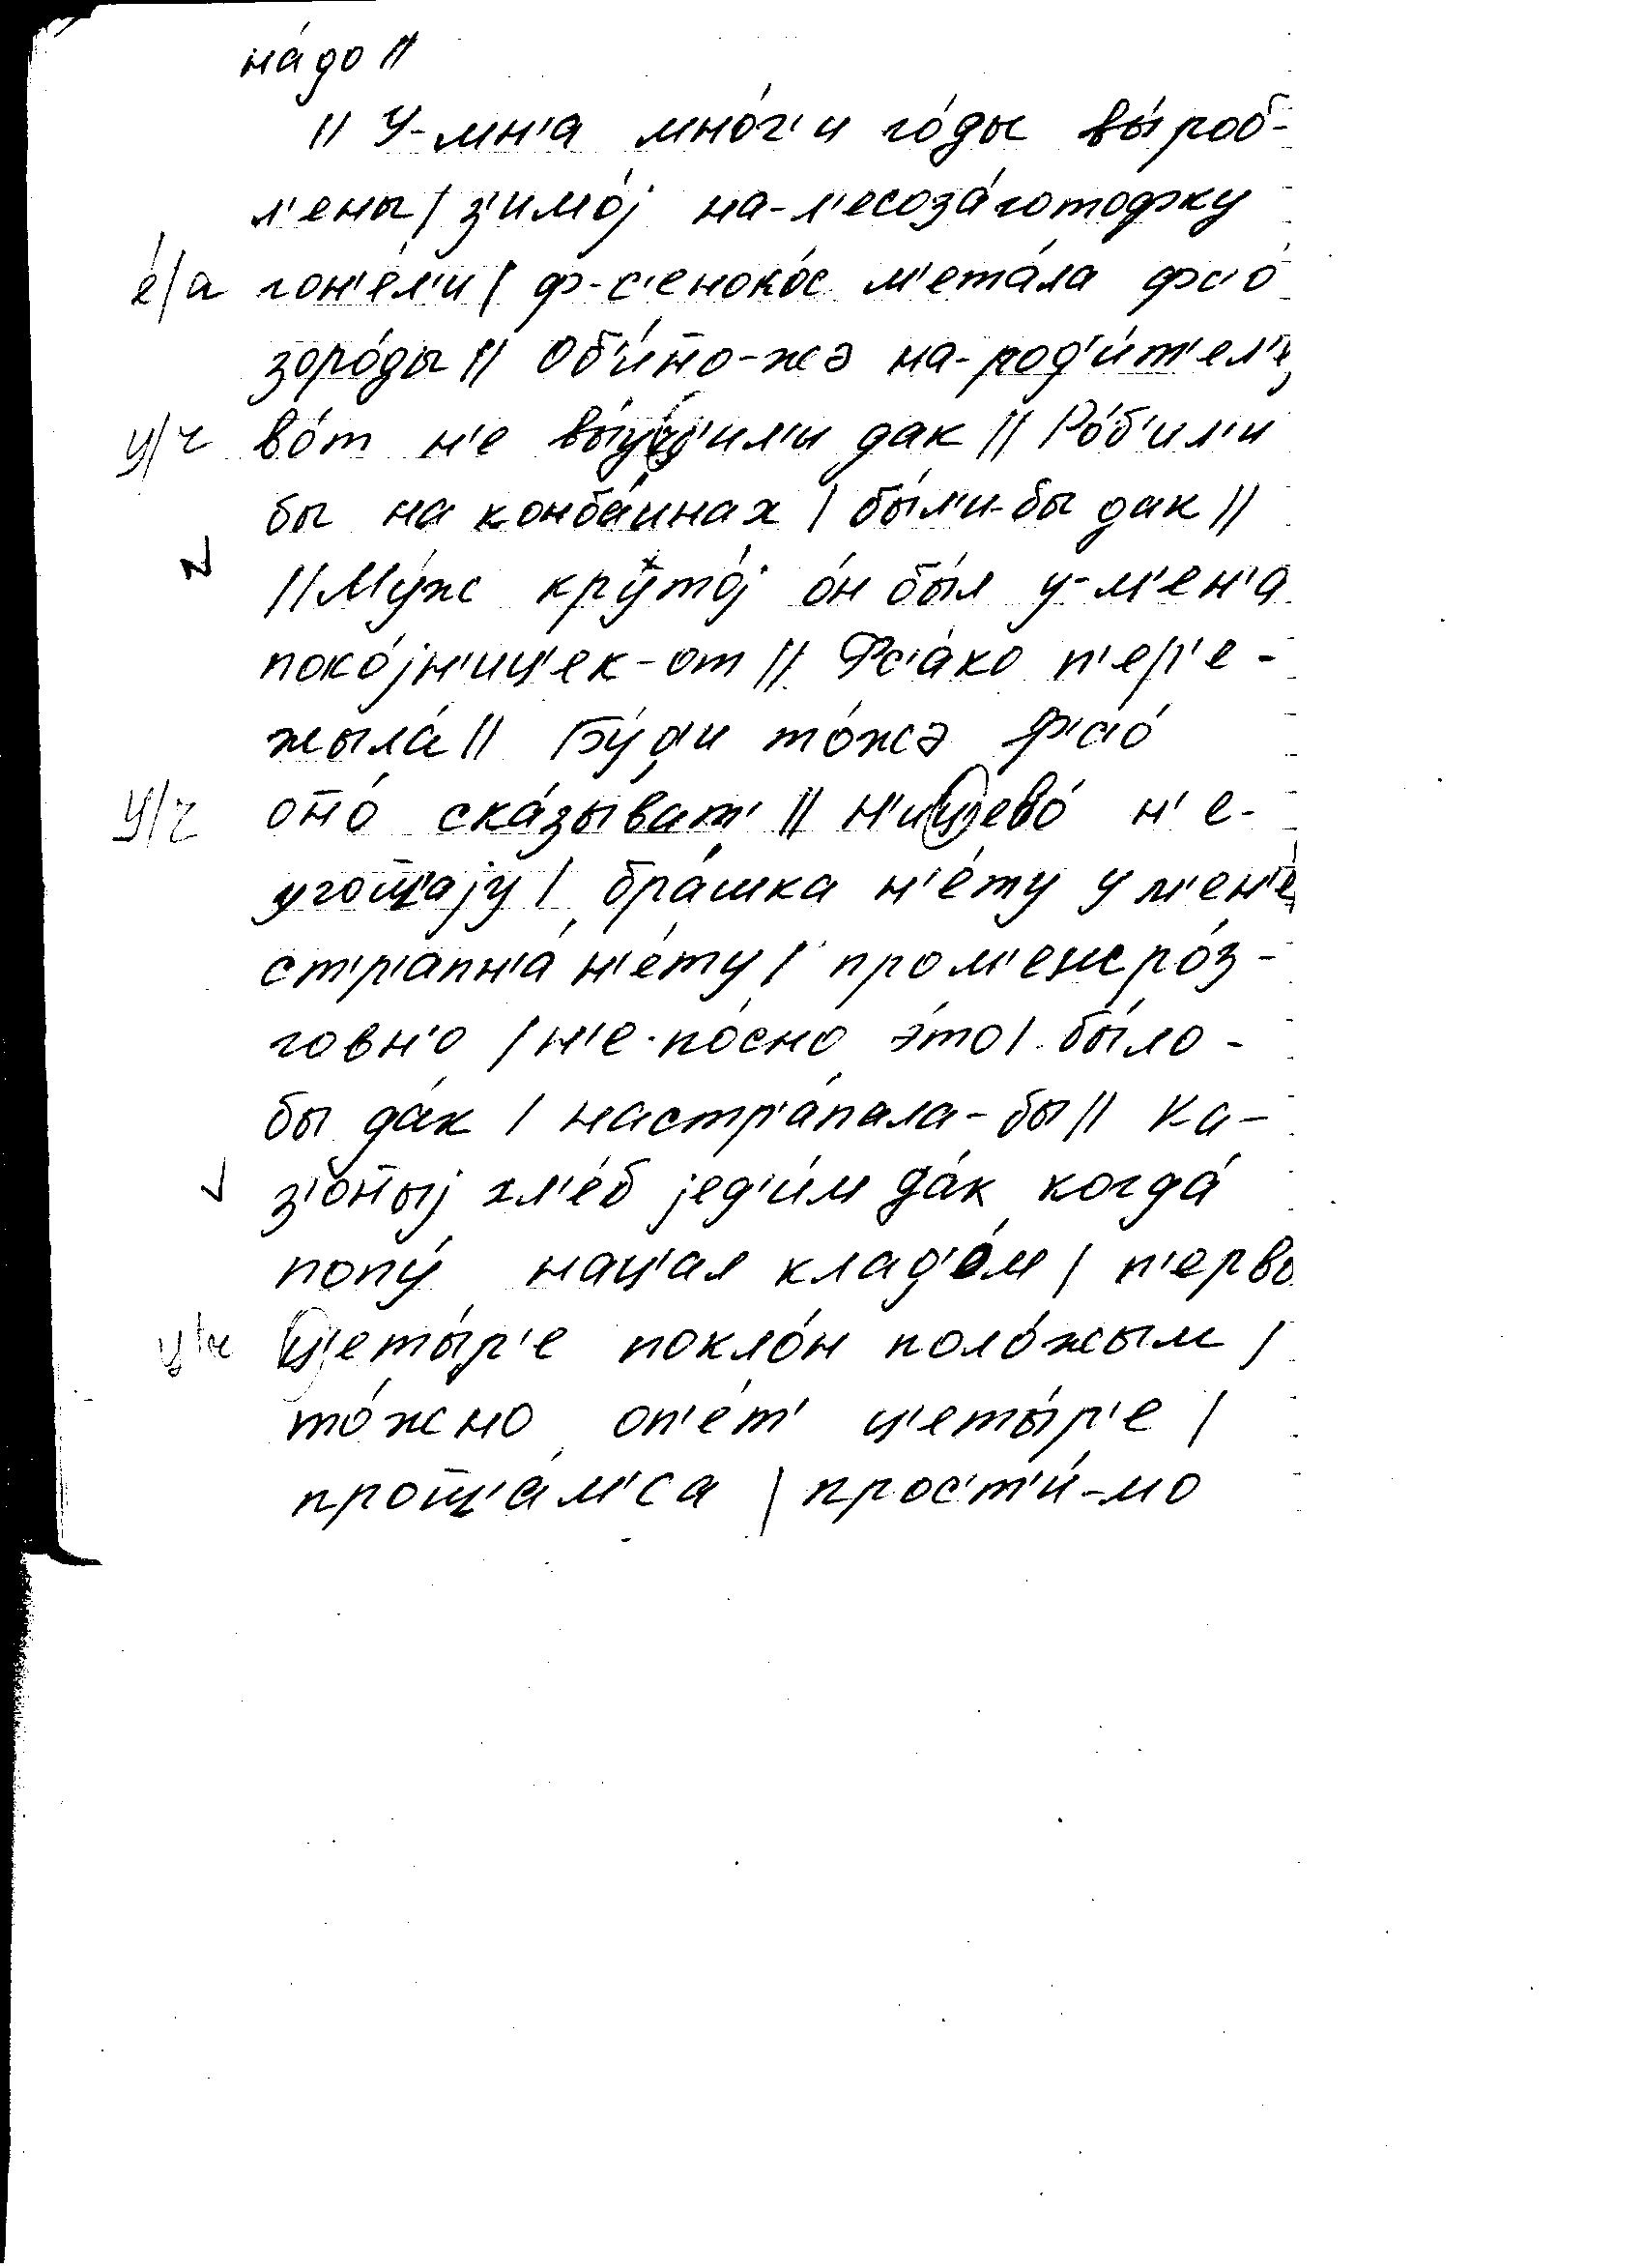 на́до ||
|| У-мн'а мно́г'и го́ды вы́роб-
л'ены | з'имо́j на-л'есоза́готофку
е́/а гон'е́л'и | ф-с'еноко́с м'ета́ла фс'о́
зоро́ды || Об'и́н̄о-жэ на-род'и́т'ел'е,
ц/ч во́т н'е вы́уц'ил'и дак || Ро́б'ил'и
бы на комба́инах | бы́л'и-бы дак ||
|| Му́ж круто́j о́н бы́л у-м'ен'а
поко́jн'иц'ек-от || Фс'а́ко п'ер'е-
жыла́ || Бу́ди то́жэ фс'о́
он̄о́ ска́зыват' || Н'ицево́ н'е-
ц/ч
угош̄'аjу | бра́шка н'е́ту у м'ен'е́
ст'р'апн'а́ н'е́ту | пром'ежро́з-
говн'о | н'е-по́сно э́то | бы́ло-
бы да́к | настр'а́пала-бы || Ка-
з'о́н̄ыj хл'е́б jед'и́м да́к когда́
попу́ нац'ал клад'о́м | п'ерво
ц/ч ц'еты́р'е покло́н поло́жым |
то́жно оп'е́т' ц'еты́р'е |
прош̄'а́м'са | прос'т'и́-мо